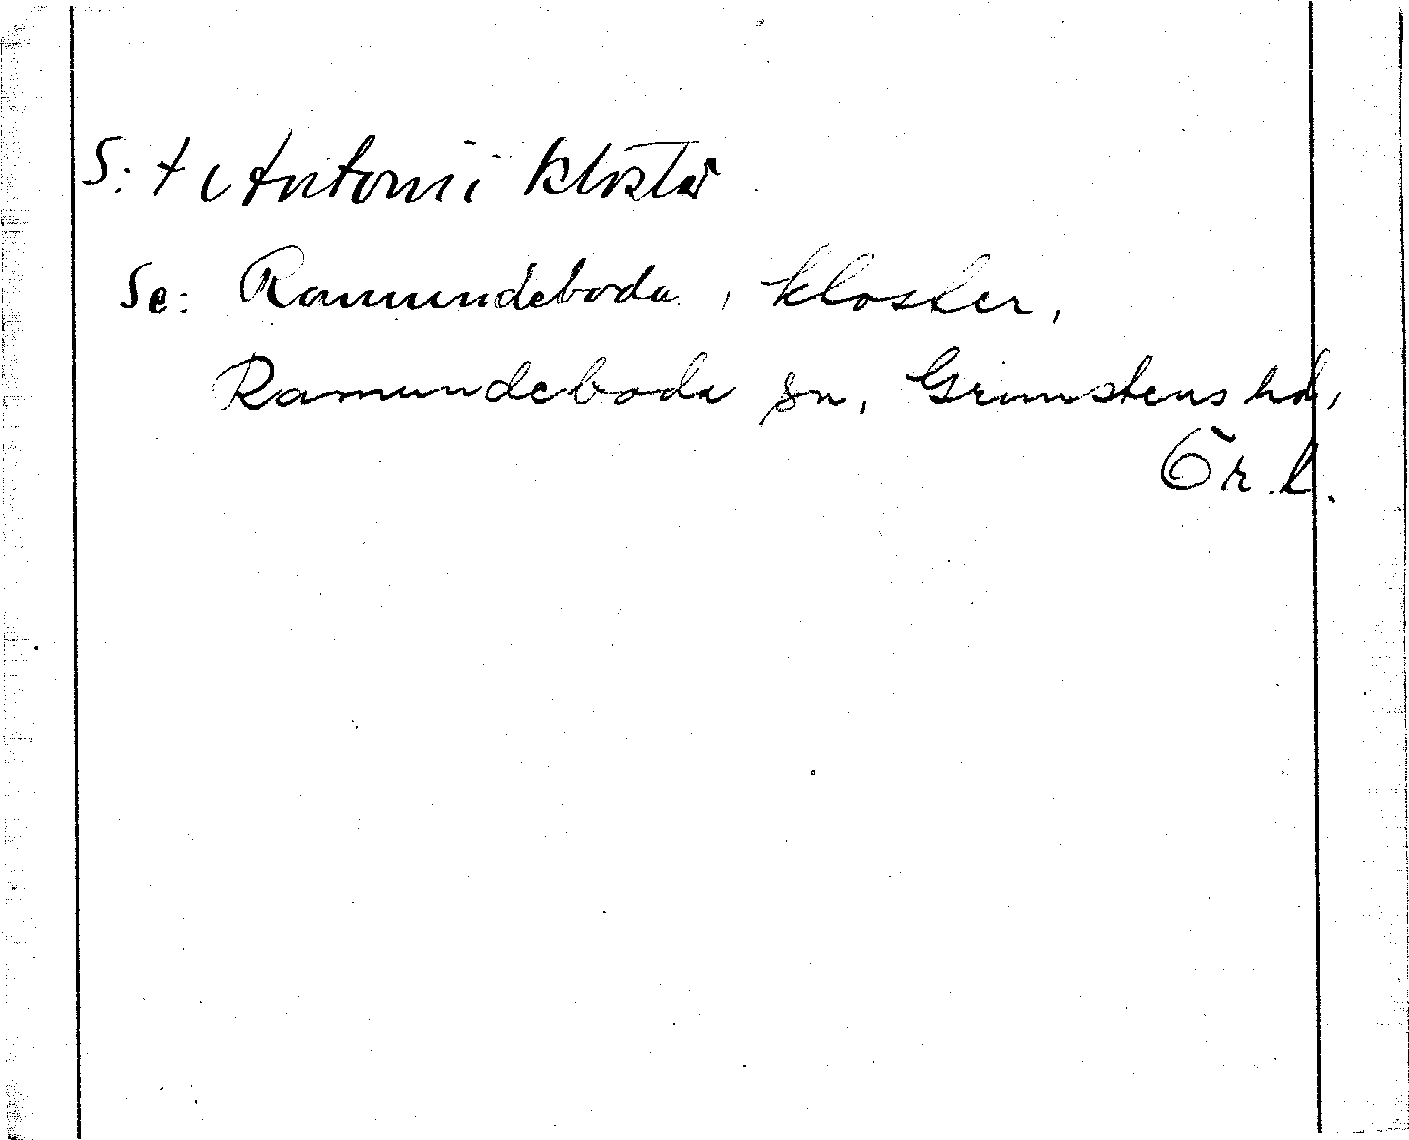 S:t Antonii kloster
Se: Ramundeboda, kloster,
Ramundeboda sn, Grimstens hd,
Ör. l.